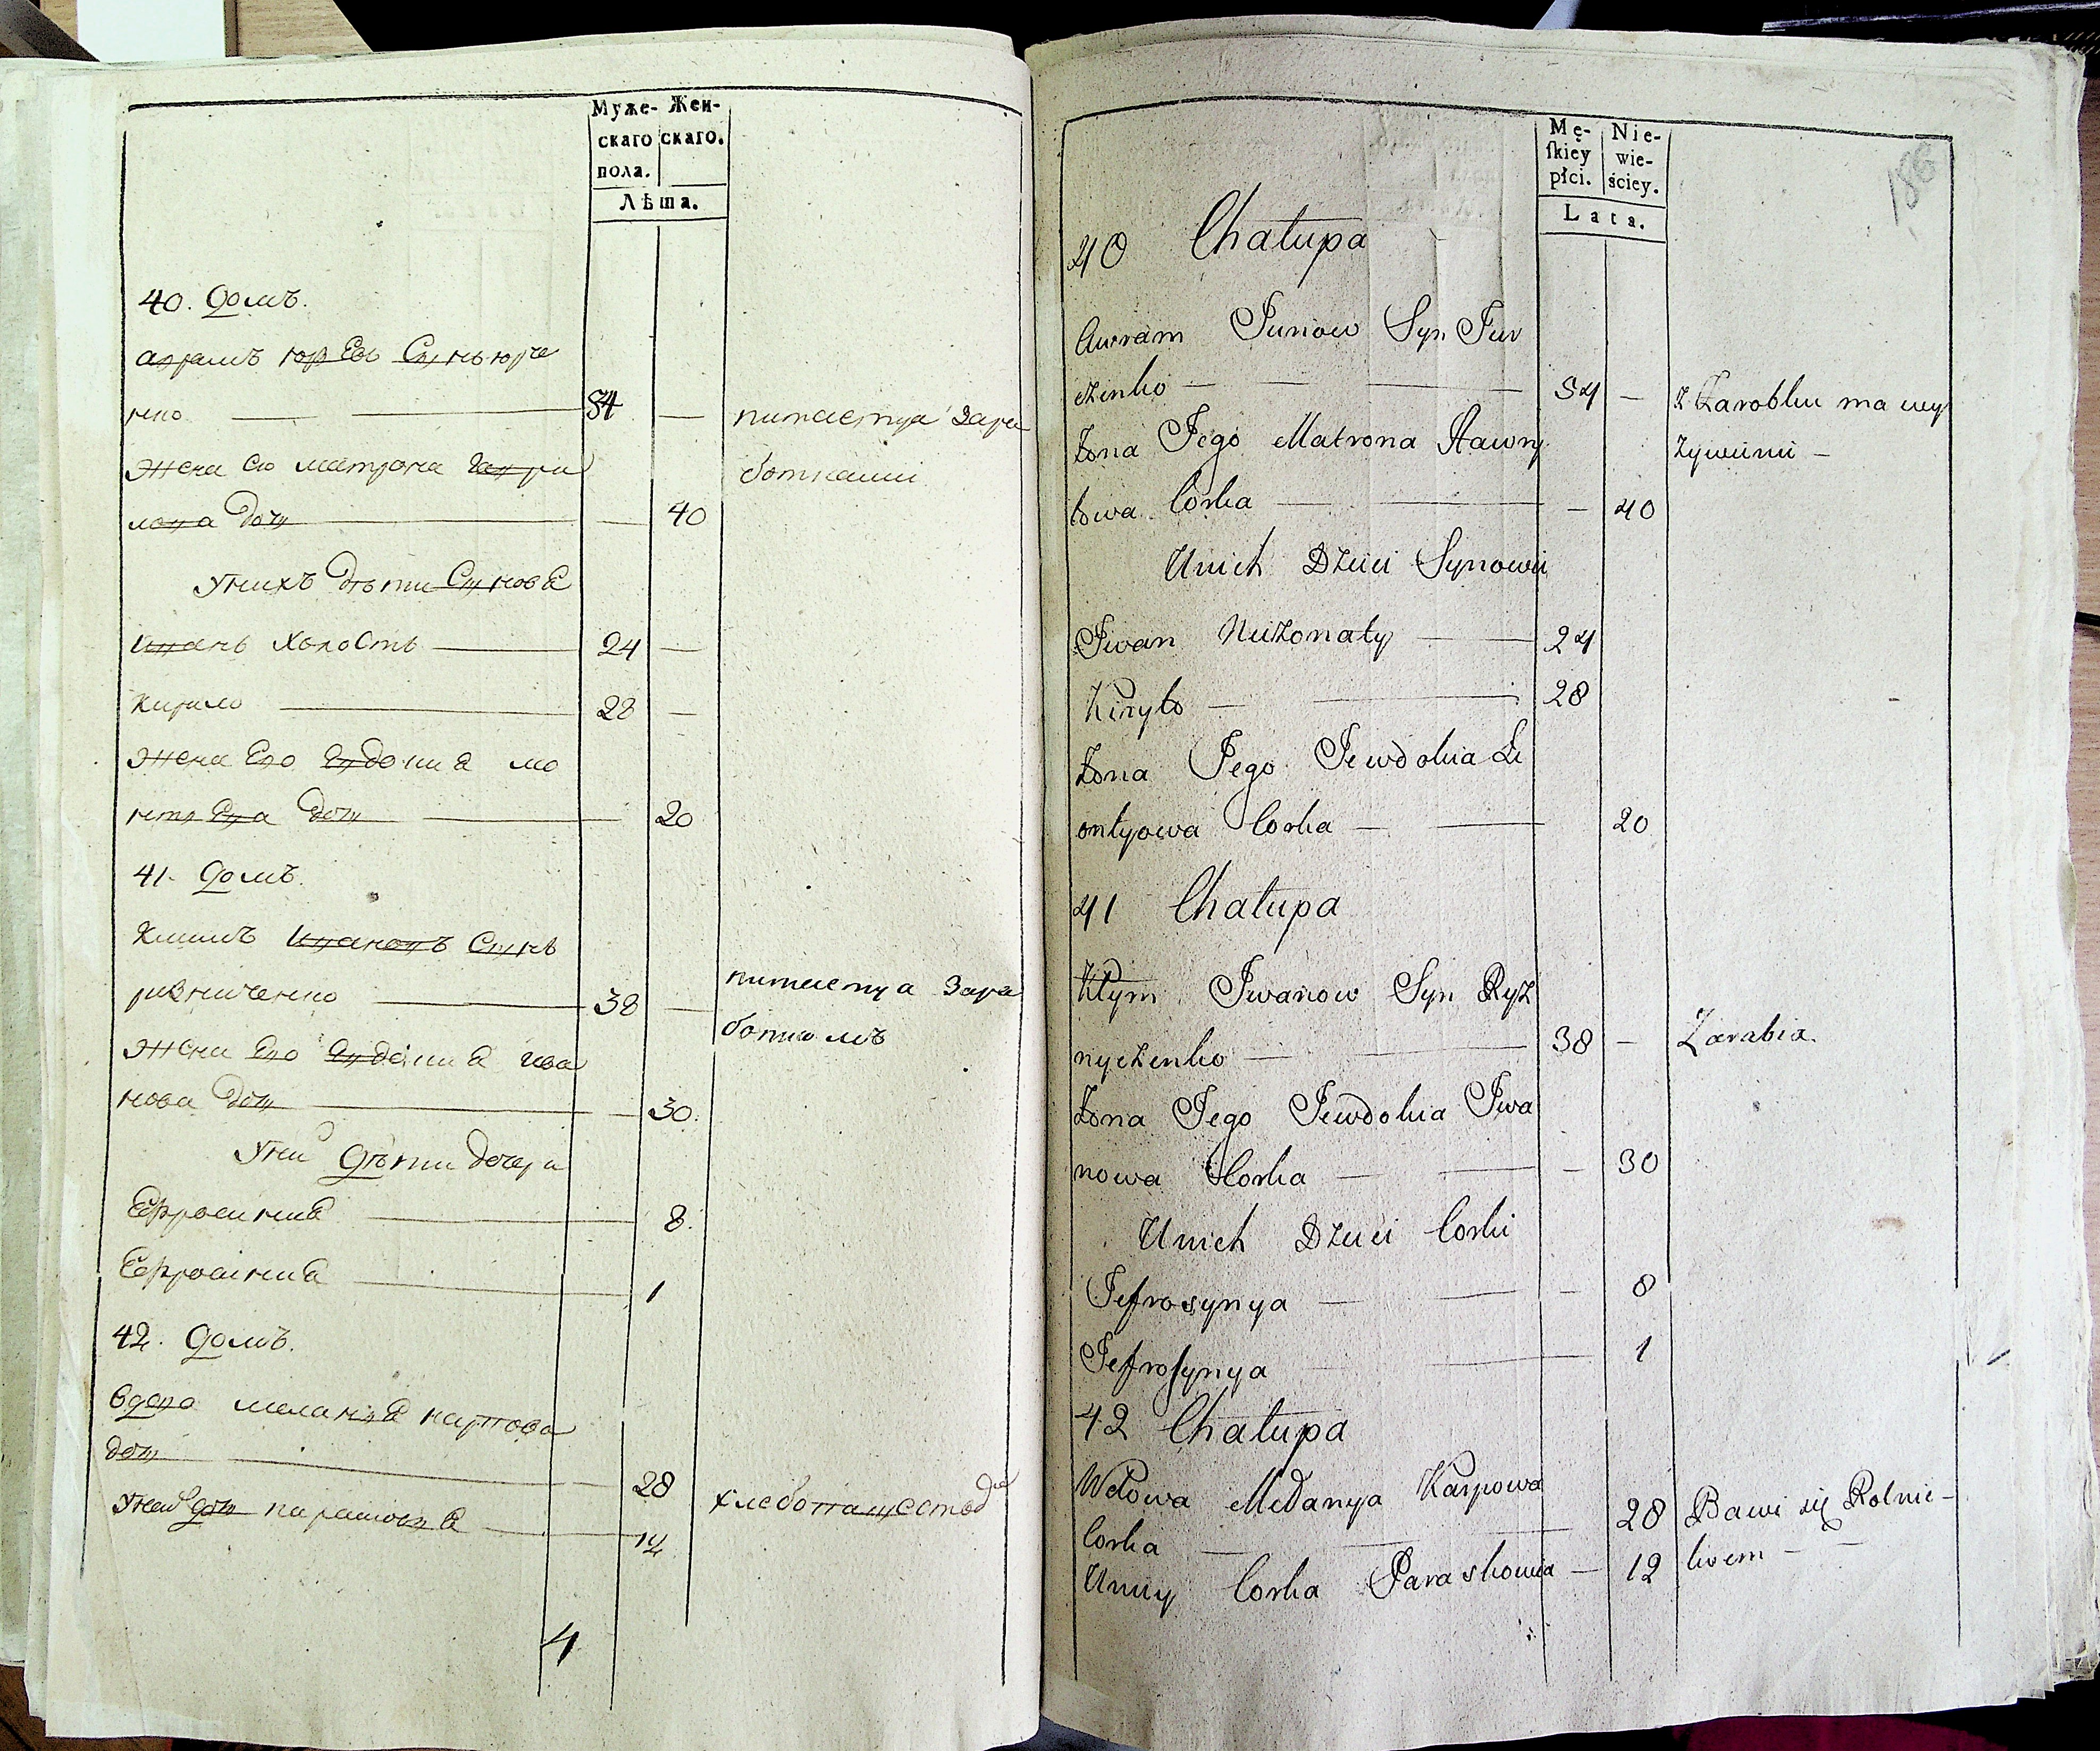 Муже- Жен-
скаго скаго.
пола.
Лѣта.
40. Домъ.
аврамъ юрЕвъ Сынъ юрче
нко — — 54 — питается зара
жена его матрона гаври ботками
лова дочь — — 40
унихъ дѣти СыновЕ
иванъ холостъ — 24 —
кирило — 28 —
жена Его Евдокиа ле
онтЕва дочь — 20
41. Домъ.
климъ ивановъ Сынъ
резниченко — 38 — питается зара
жена Его Евдокиа ива боткомъ
нова дочь — — 30.
уни дѣти дочери
Ефросиниа — 8.
Ефросиниа — 1
42. Домъ.
вдова меланиа карпова
дочь — — 28 хлебопашество
уней дочь парасковиа — 12
4
Mę- Nie-
ſkiey wie-
płci. ściey.
Lata.
186
40 Chałupa
Awram Juriow Syn Jur
czenko — — — 54 — z Zarobku ma wy
Żona Jego Matrona Hawry żywienie —
łowa Corka — — — 40
Unich Dzieci Synowie
Iwan Nieżonaty — 24
Kiryło — — 28
Żona Jego Jewdokia Le
ontyowa Corka — — 20
41 Chałupa
Kłym Iwanow Syn Ryz
nyczenko — — 38 — Zarabia.
Żona Jego Jewdokia Iwa
nowa Corka — — — 30
Unich Dzieci Corki
Jefrosynya — — — 8
Jefroſynya — 1
42 Chałupa
Wdowa Mełanya Karpowa
Corka — — 28 Bawi się Rolnic-
Uniey Corka Paraskowia — 12 twem — —